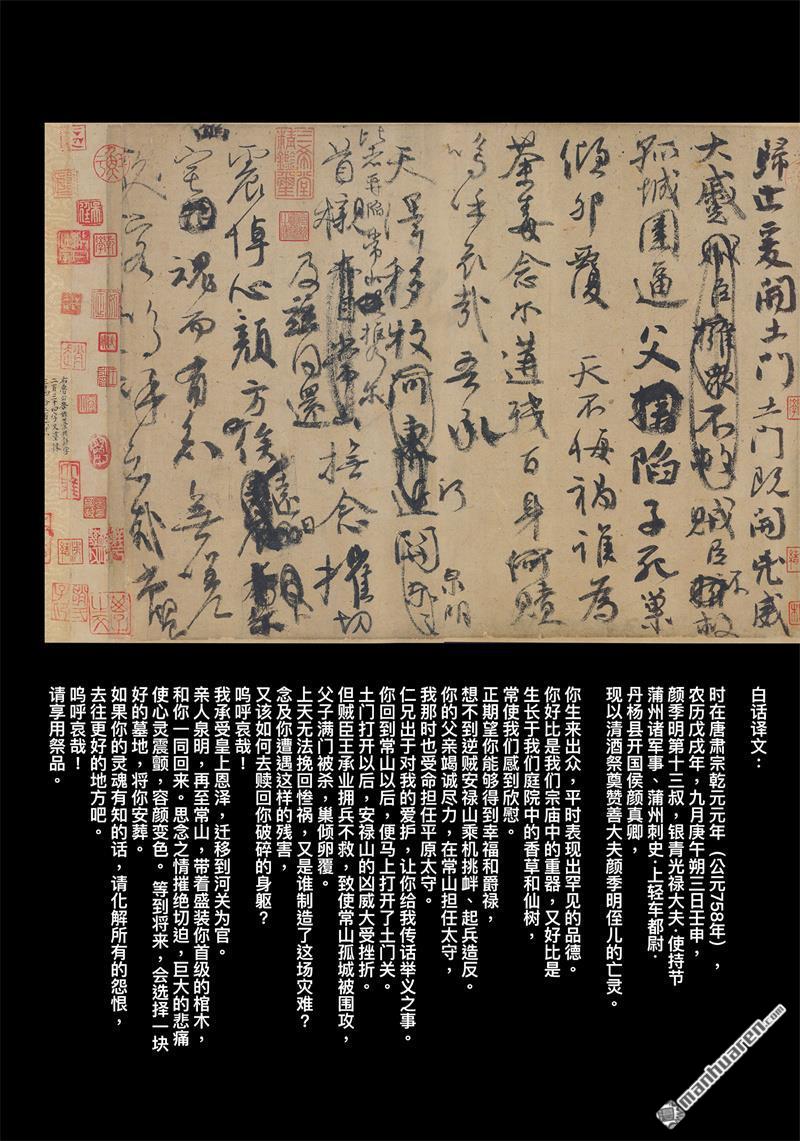 歸止爰開土門土門既開凶威
大蹙賊臣擁衆不救賊臣不救
孤城圍逼父陷子死巢
傾卵覆 天不悔禍誰為
荼毒念尔遘殘百身何贖
嗚呼哀哉吾承
天澤移牧河關泉明
比者再陷常山攜尔
首櫬
及茲同還
撫念摧切
震悼心顏方俟遠日
宅魂而有知無嗟
久客嗚呼哀哉尚饗
白话译文：
时在唐肃宗乾元元年（公元758年），
农历戊戌年，九月庚午朔三日壬申，
颜季明第十三叔，银青光禄大夫·使持节
蒲州诸军事、蒲州刺史·上轻车都尉·
丹杨县开国侯颜真卿，
现以清酒祭奠赞善大夫颜季明侄儿的亡灵。
你生来出众，平时表现出罕见的品德。
你好比是我们宗庙中的重器，又好比是
生长于我们庭院中的香草和仙树，
常使我们感到欣慰。
正期望你能够得到幸福和爵禄，
想不到逆贼安禄山乘机挑衅、起兵造反。
你的父亲竭诚尽力，在常山担任太守，
我那时也受命担任平原太守。
仁兄出于对我的爱护，让你给我传话举义之事。
你回到常山以后，便马上打开了土门关。
土门打开以后，安禄山的凶威大受挫折。
但贼臣王承业拥兵不救，致使常山孤城被围攻，
父子满门被杀，巢倾卵覆。
上天无法挽回惨祸，又是谁制造了这场灾难？
念及你遭遇这样的残害，
又该如何去赎回你破碎的身躯？
呜呼哀哉！
我承受皇上恩泽，迁移到河关为官。
亲人泉明，再至常山，带着盛装你首级的棺木，
和你一同回来。思念之情摧绝切迫，巨大的悲痛
使心灵震颤，容颜变色。等到将来，会选择一块
好的墓地，将你安葬。
如果你的灵魂有知的话，请化解所有的怨恨，
去往更好的地方吧。
呜呼哀哉！
请享用祭品。
manhuaren.com